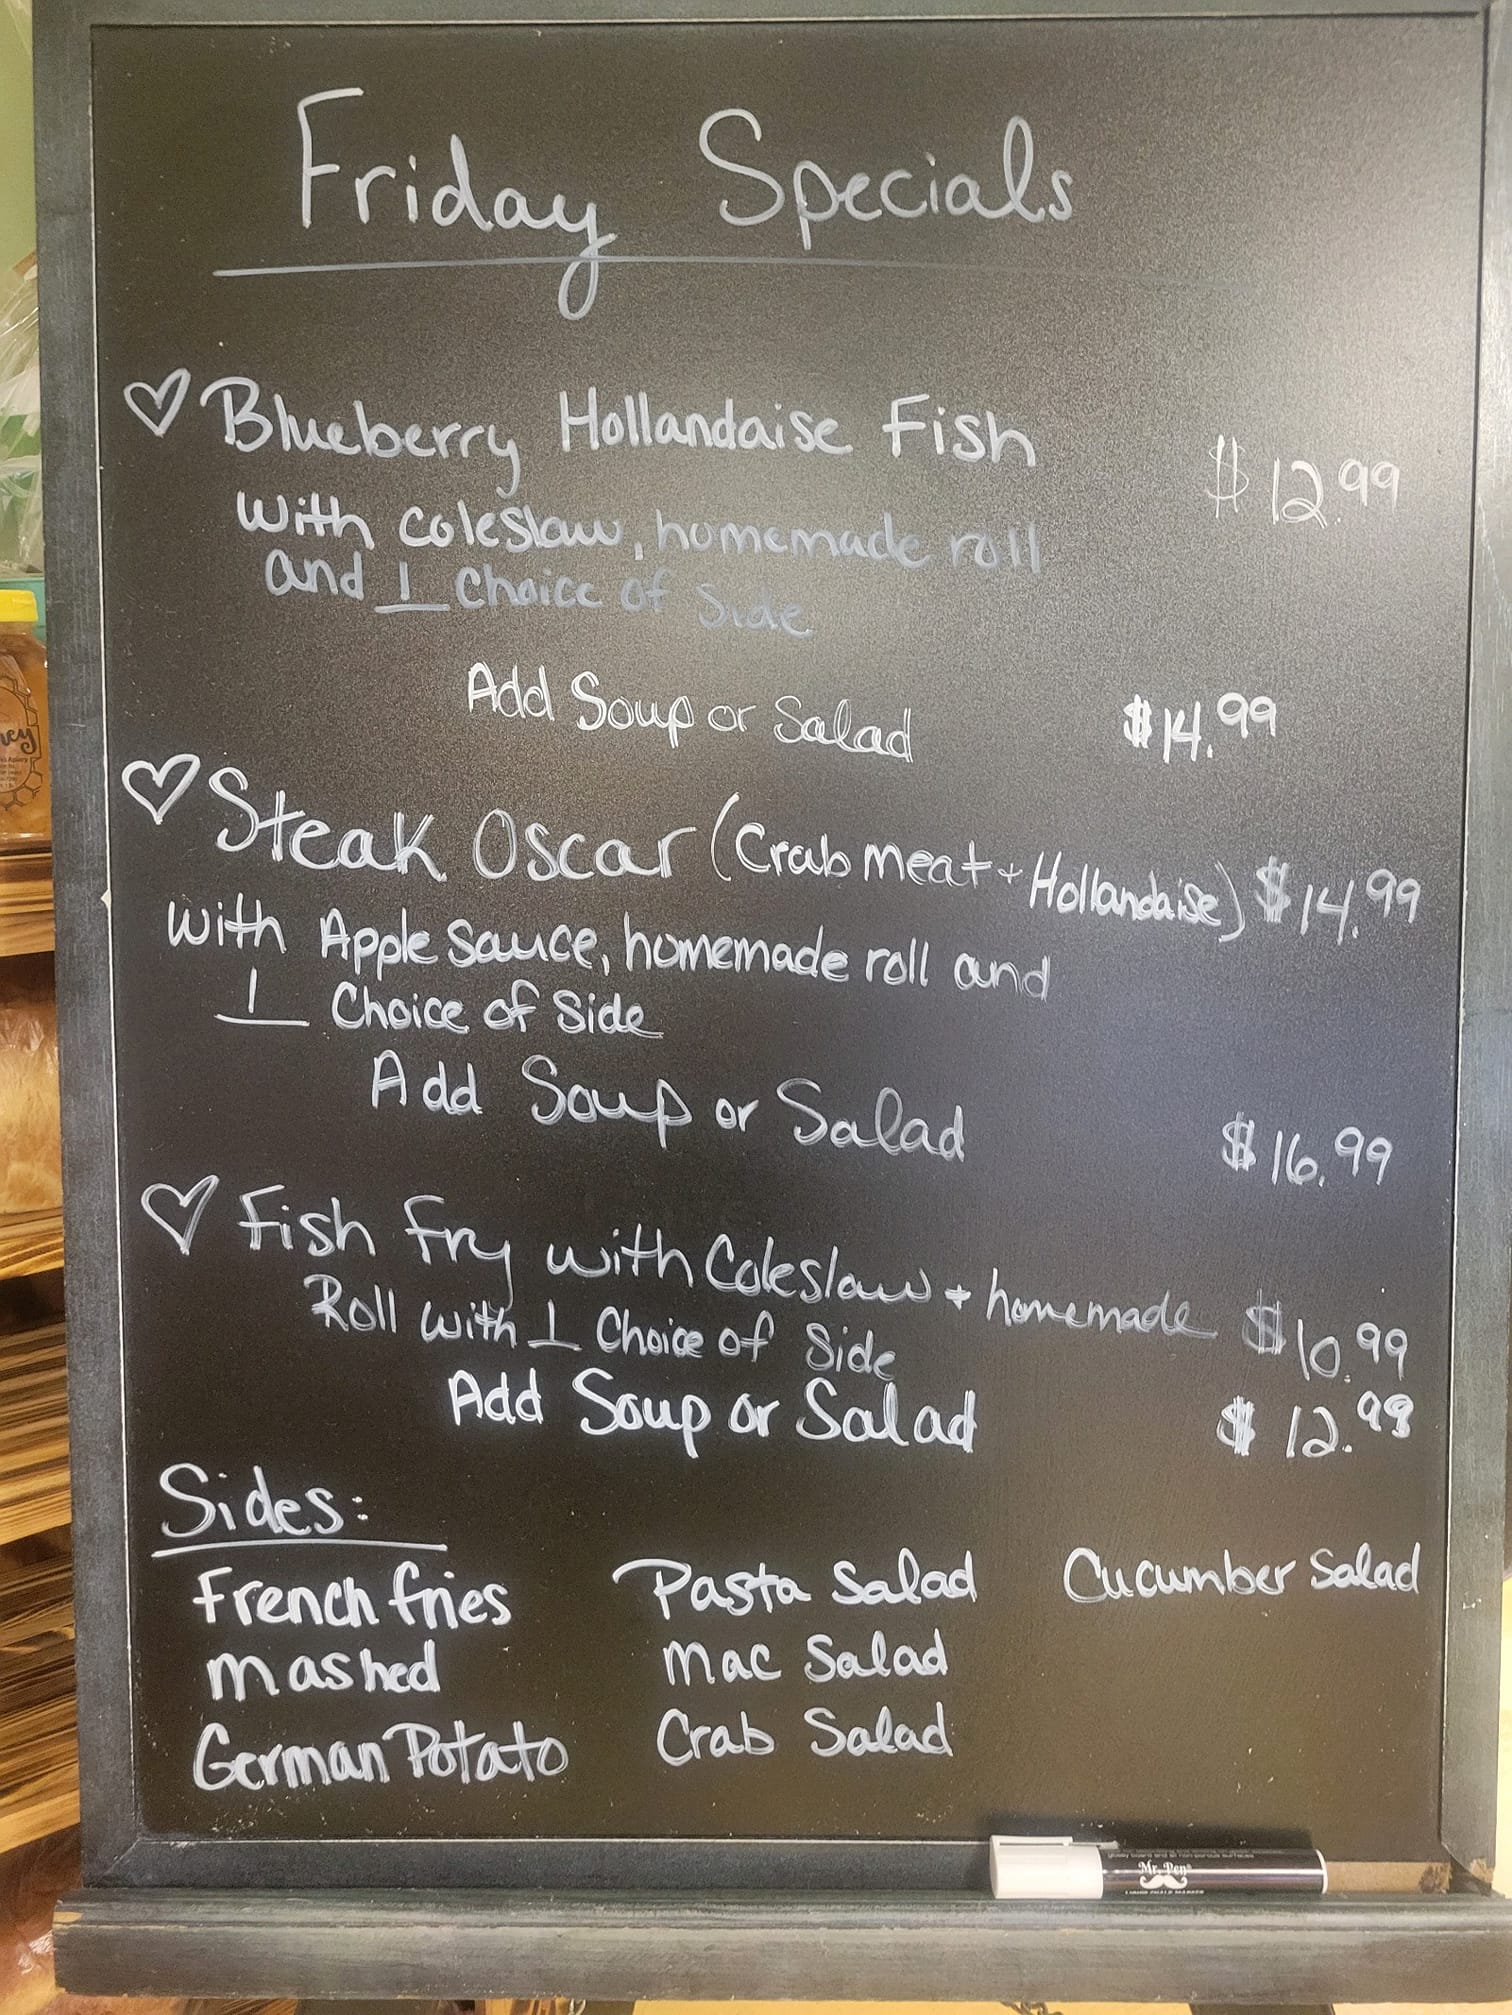 Friday Specials
♡ Blueberry Hollandaise Fish
$12.99
with coleslaw, homemade roll
and 1 Choice of Side
Add Soup or Salad $14.99
♡ Steak Oscar (Crab meat + Hollandaise) $14.99
with Apple Sauce, homemade roll and
1 Choice of Side
Add Soup or Salad $16.99
♡ Fish Fry with Coleslaw + homemade $10.99
Roll with 1 Choice of Side
Add Soup or Salad $12.99
Sides:
French fries Pasta Salad Cucumber Salad
mashed Mac Salad
German Potato Crab Salad
Mr. Pen
LIQUID CHALK MARKER